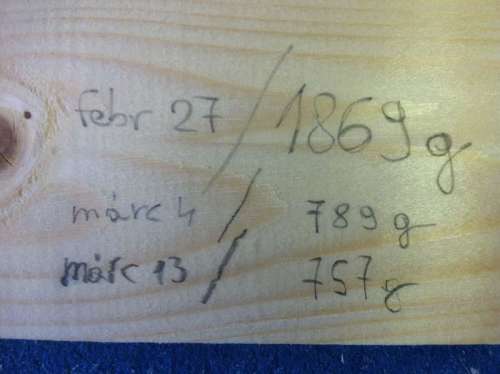 febr 27 / 1869 g
márc 4 / 789 g
márc 13 / 757 g